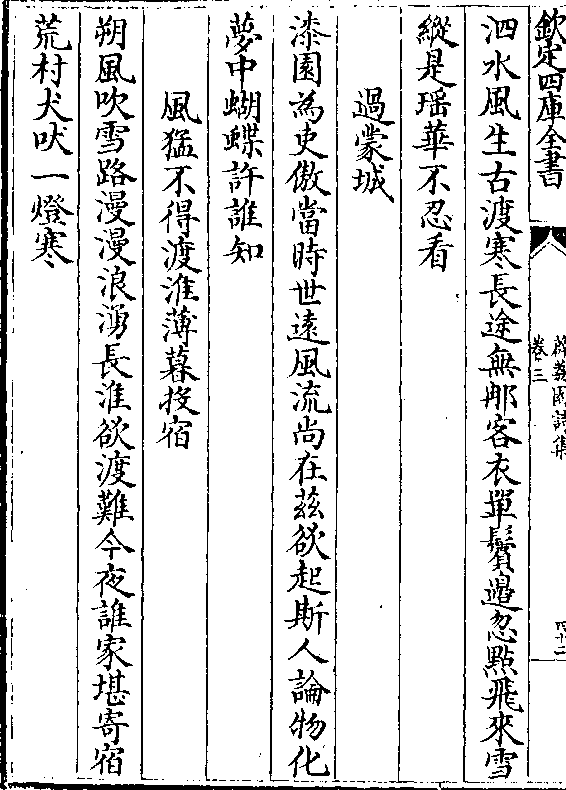 欽定四庫全書
薜荔園詩集
卷三
四十二
泗水風生古渡寒長途無那客衣單鬢邉忽點飛來雪
縱是瑶華不忍看
過蒙城
漆園為吏傲當時世逺風流尚在兹欲起斯人論物化
夢中蝴蝶許誰知
風猛不得渡淮薄暮投宿
朔風吹雪路漫漫浪湧長淮欲渡難今夜誰家堪寄宿
荒村犬吠一燈寒